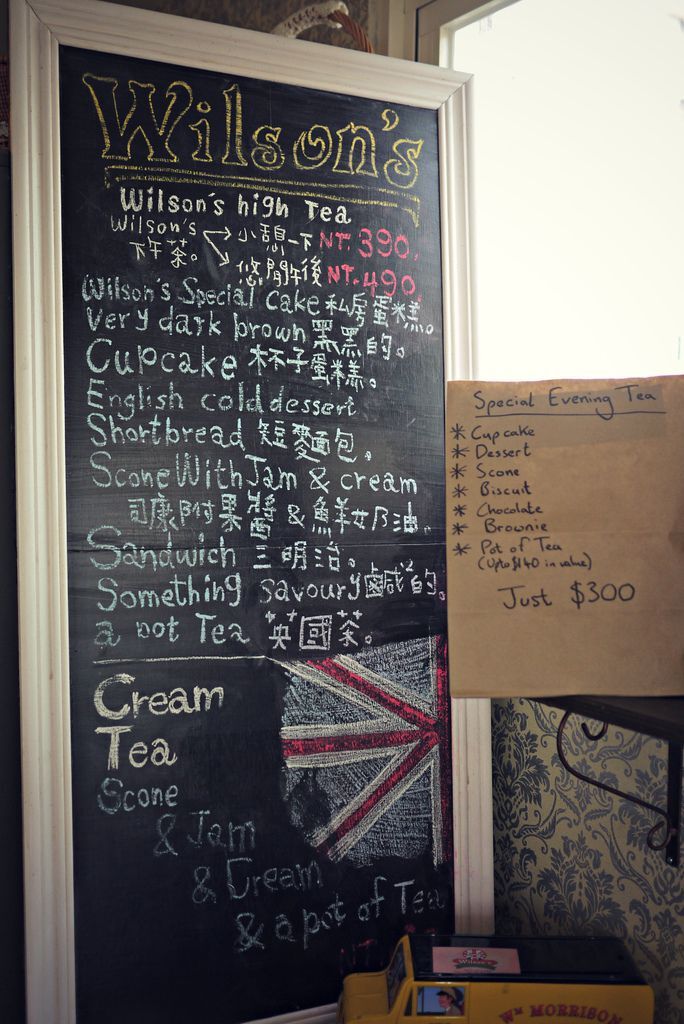 Wilson's
Wilson's high Tea
Wilson's → 小憩一下 NT. 390,
下午茶。 → 悠閒午後 NT. 490,
Wilson's Special cake 私房蛋糕。
Very dark brown 黑黑的。
Cupcake 杯子蛋糕。
English cold dessert
Shortbread 短麵包。
Scone With Jam & cream
司康附果醬 & 鮮奶油。
Sandwich 三明治。
Something savoury 鹹鹹的。
a pot Tea 英國茶。
Cream
Tea
Scone
& Jam
& Cream
& a pot of Tea
Special Evening Tea
* Cupcake
* Dessert
* Scone
* Biscuit
* Chocolate
* Brownie
* Pot of Tea
(Upto $140 in value)
Just $300
Wm MORRISON